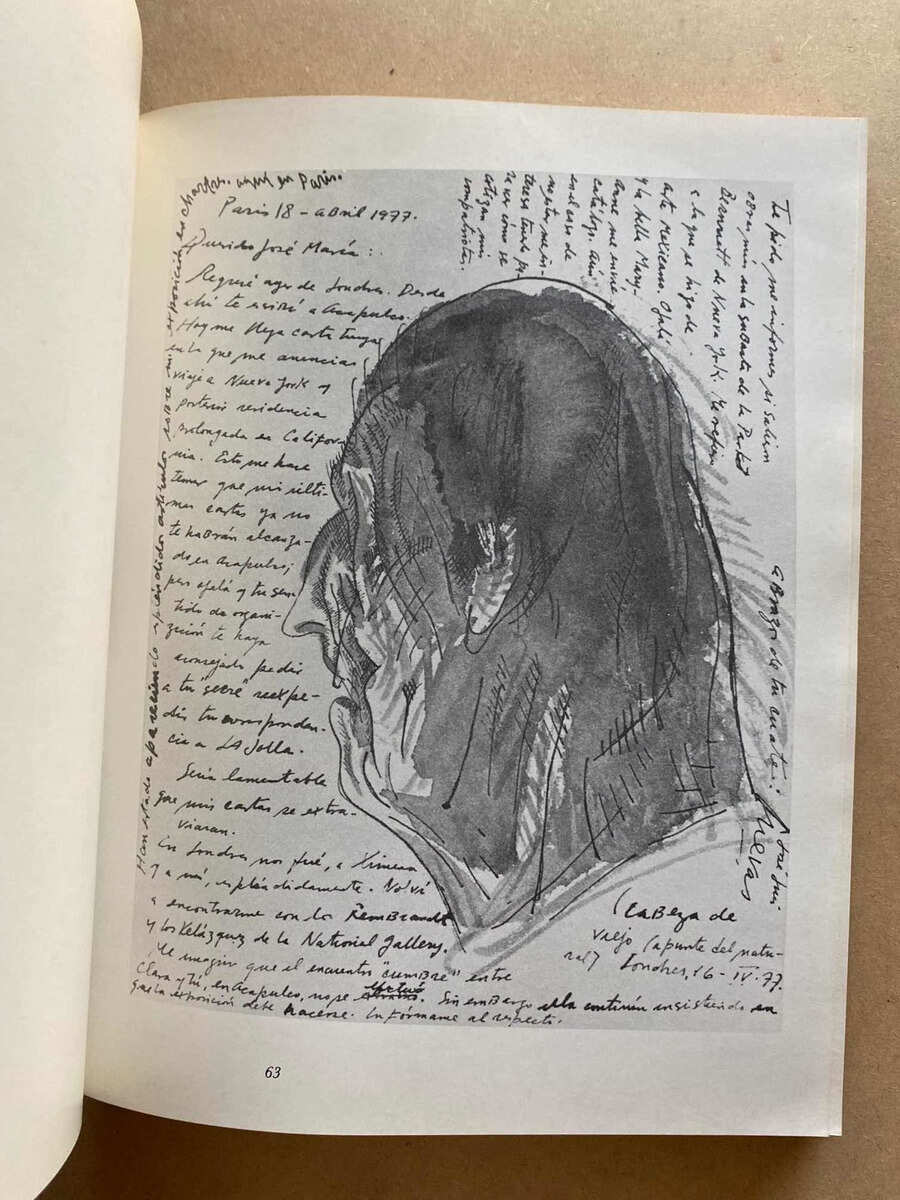 Paris 18 - abril 1977.
Querido José María:
Regresé ayer de Londres. Desde
ahí te escribí a Acapulco.
Hoy me llega carta tuya
en la que me anuncias
viaje a Nueva York y
posterior residencia
prolongada en Califor-
nia. Esto me hace
temer que mis últi-
mas cartas ya no
te habrán alcanza-
do en Acapulco;
pero ojalá y tu sen-
tido de organi-
zación te haya
aconsejado pedir
a tu "secre" reexpe-
dir tu correspon-
cia a LA Jolla.
Sería lamentable
que mis cartas se extra-
viaran.
En Londres nos fué, a Ximena
y a mí, espléndidamente. Volví
a encontrarme con los RemBrandt
y los Velázquez de la National Gallery.
Me imagino que el encuentro "cumBre" entre
Clara y tú, en Acapulco, no se efectuó. Sin emBargo ella continúa insistiendo en
que la exposición debe hacerse. Infórmame al respecto.
Han estado apareciendo espléndidos artículos sobre mi exposición en Chartres. aquí en París.
Te pido me informes si salieron
obras mías en la subasta de la Parke
Bernnett de Nueva York. Me refiero
a la que se hizo de
arte Mexicano. Ojalá
y la bella Mary-
Anne me envíe
catálogo. Aún
en el caso de
no estar me in-
teresa tendré
ver cómo se
cotizan mis
compatriotas.
aBrazo de tu cuate:
José Luis
Cuevas
(caBeza de
viejo (apunte del natu-
ral)
Londres, 16 - IV. 77.
63